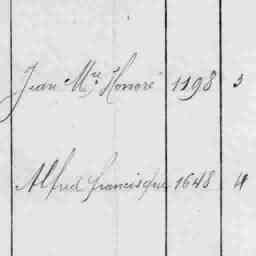 Jean Mie Honoré 1198 3
Alfred Francisque 1648 4